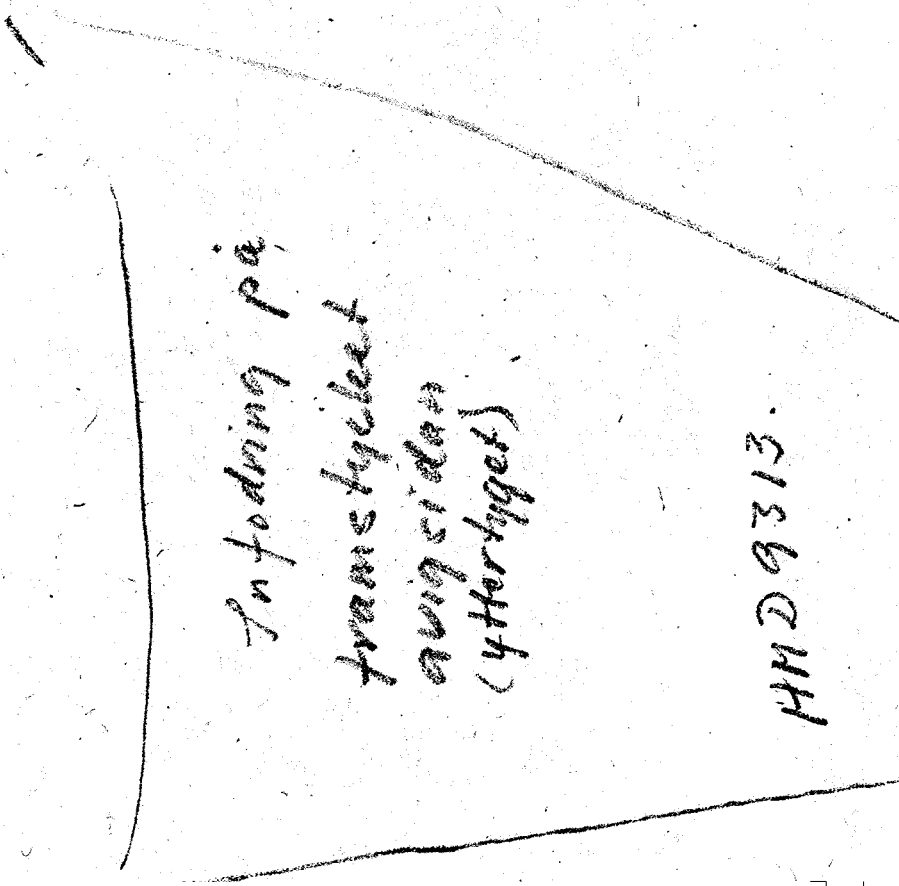 Infodring på
framstycket
avigsidan
(yttertyget)
HMD 9313.